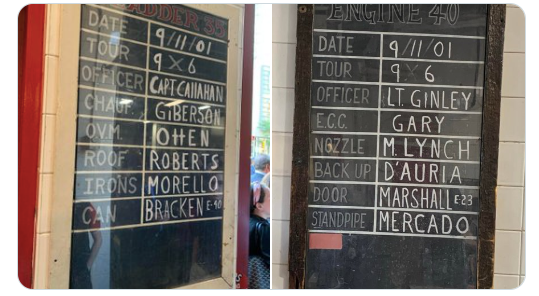 LADDER 35
DATE 9/11/01
TOUR 9 X 6
OFFICER CAPT CALLAHAN
CHAUF. GIBERSON
O.V.M. OTTEN
ROOF ROBERTS
IRONS MORELLO
CAN BRACKEN E-40
ENGINE 40
DATE 9/11/01
TOUR 9 X 6
OFFICER LT. GINLEY
E.C.C. GARY
NOZZLE M. LYNCH
BACK UP D'AURIA
DOOR MARSHALL E-23
STANDPIPE MERCADO